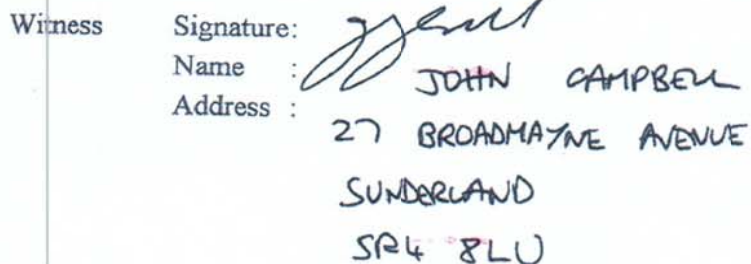 Witness Signature:
Name : JOHN CAMPBELL
Address :
27 BROADMAYNE AVENUE
SUNDERLAND
SR4 8LU